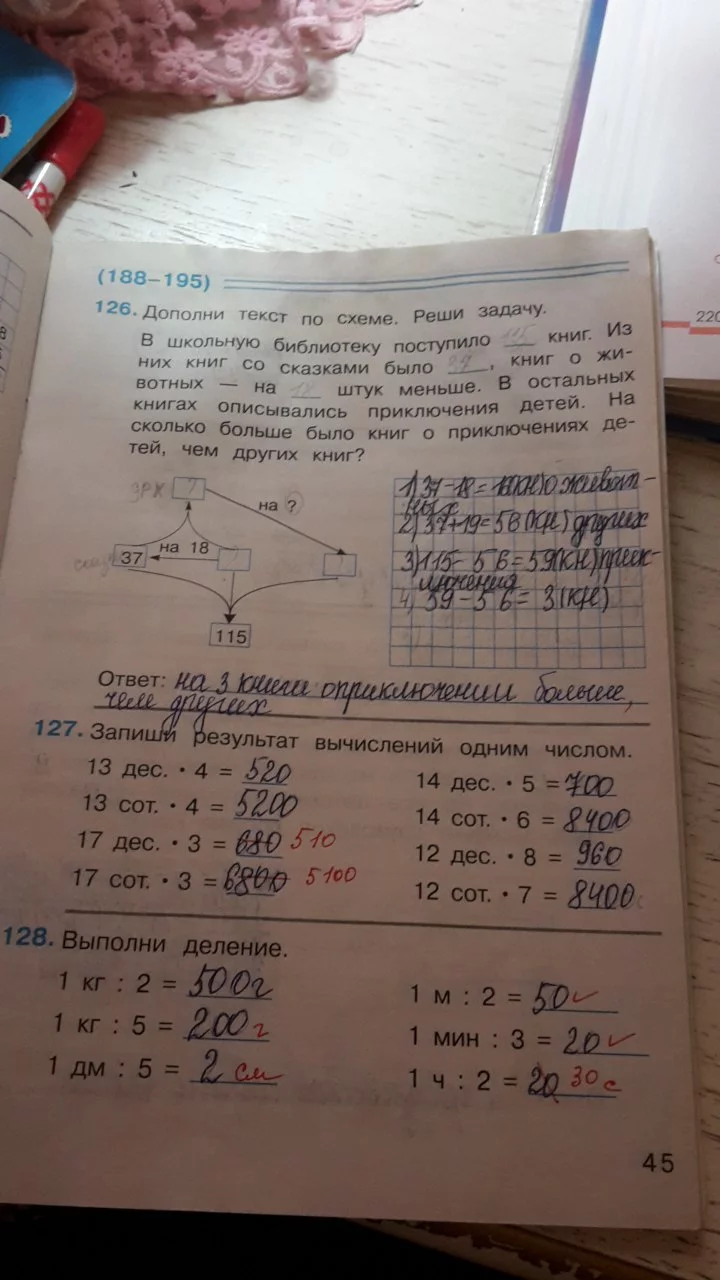 (188–195)
126. Дополни текст по схеме. Реши задачу.
В школьную библиотеку поступило 115 книг. Из
них книг со сказками было 37, книг о жи-
вотных — на 18 штук меньше. В остальных
книгах описывались приключения детей. На
сколько больше было книг о приключениях де-
тей, чем других книг?
?
на ?
37
на 18
?
?
115
2) 37+19=56(кн) других
3) 115-56=59(кн) прик-
лючения
4) 59-56=3(кн)
Ответ: на 3 книги о приключении больше,
чем других
127. Запиши результат вычислений одним числом.
13 дес. · 4 = 520
13 сот. · 4 = 5200
17 дес. · 3 = 680 510
17 сот. · 3 = 6800 5100
14 дес. · 5 = 700
14 сот. · 6 = 8400
12 дес. · 8 = 960
12 сот. · 7 = 8400
128. Выполни деление.
1 кг : 2 = 500г
1 кг : 5 = 200г
1 дм : 5 = 2 см
1 м : 2 = 50
1 мин : 3 = 20
1 ч : 2 = 20 30 с
45
220